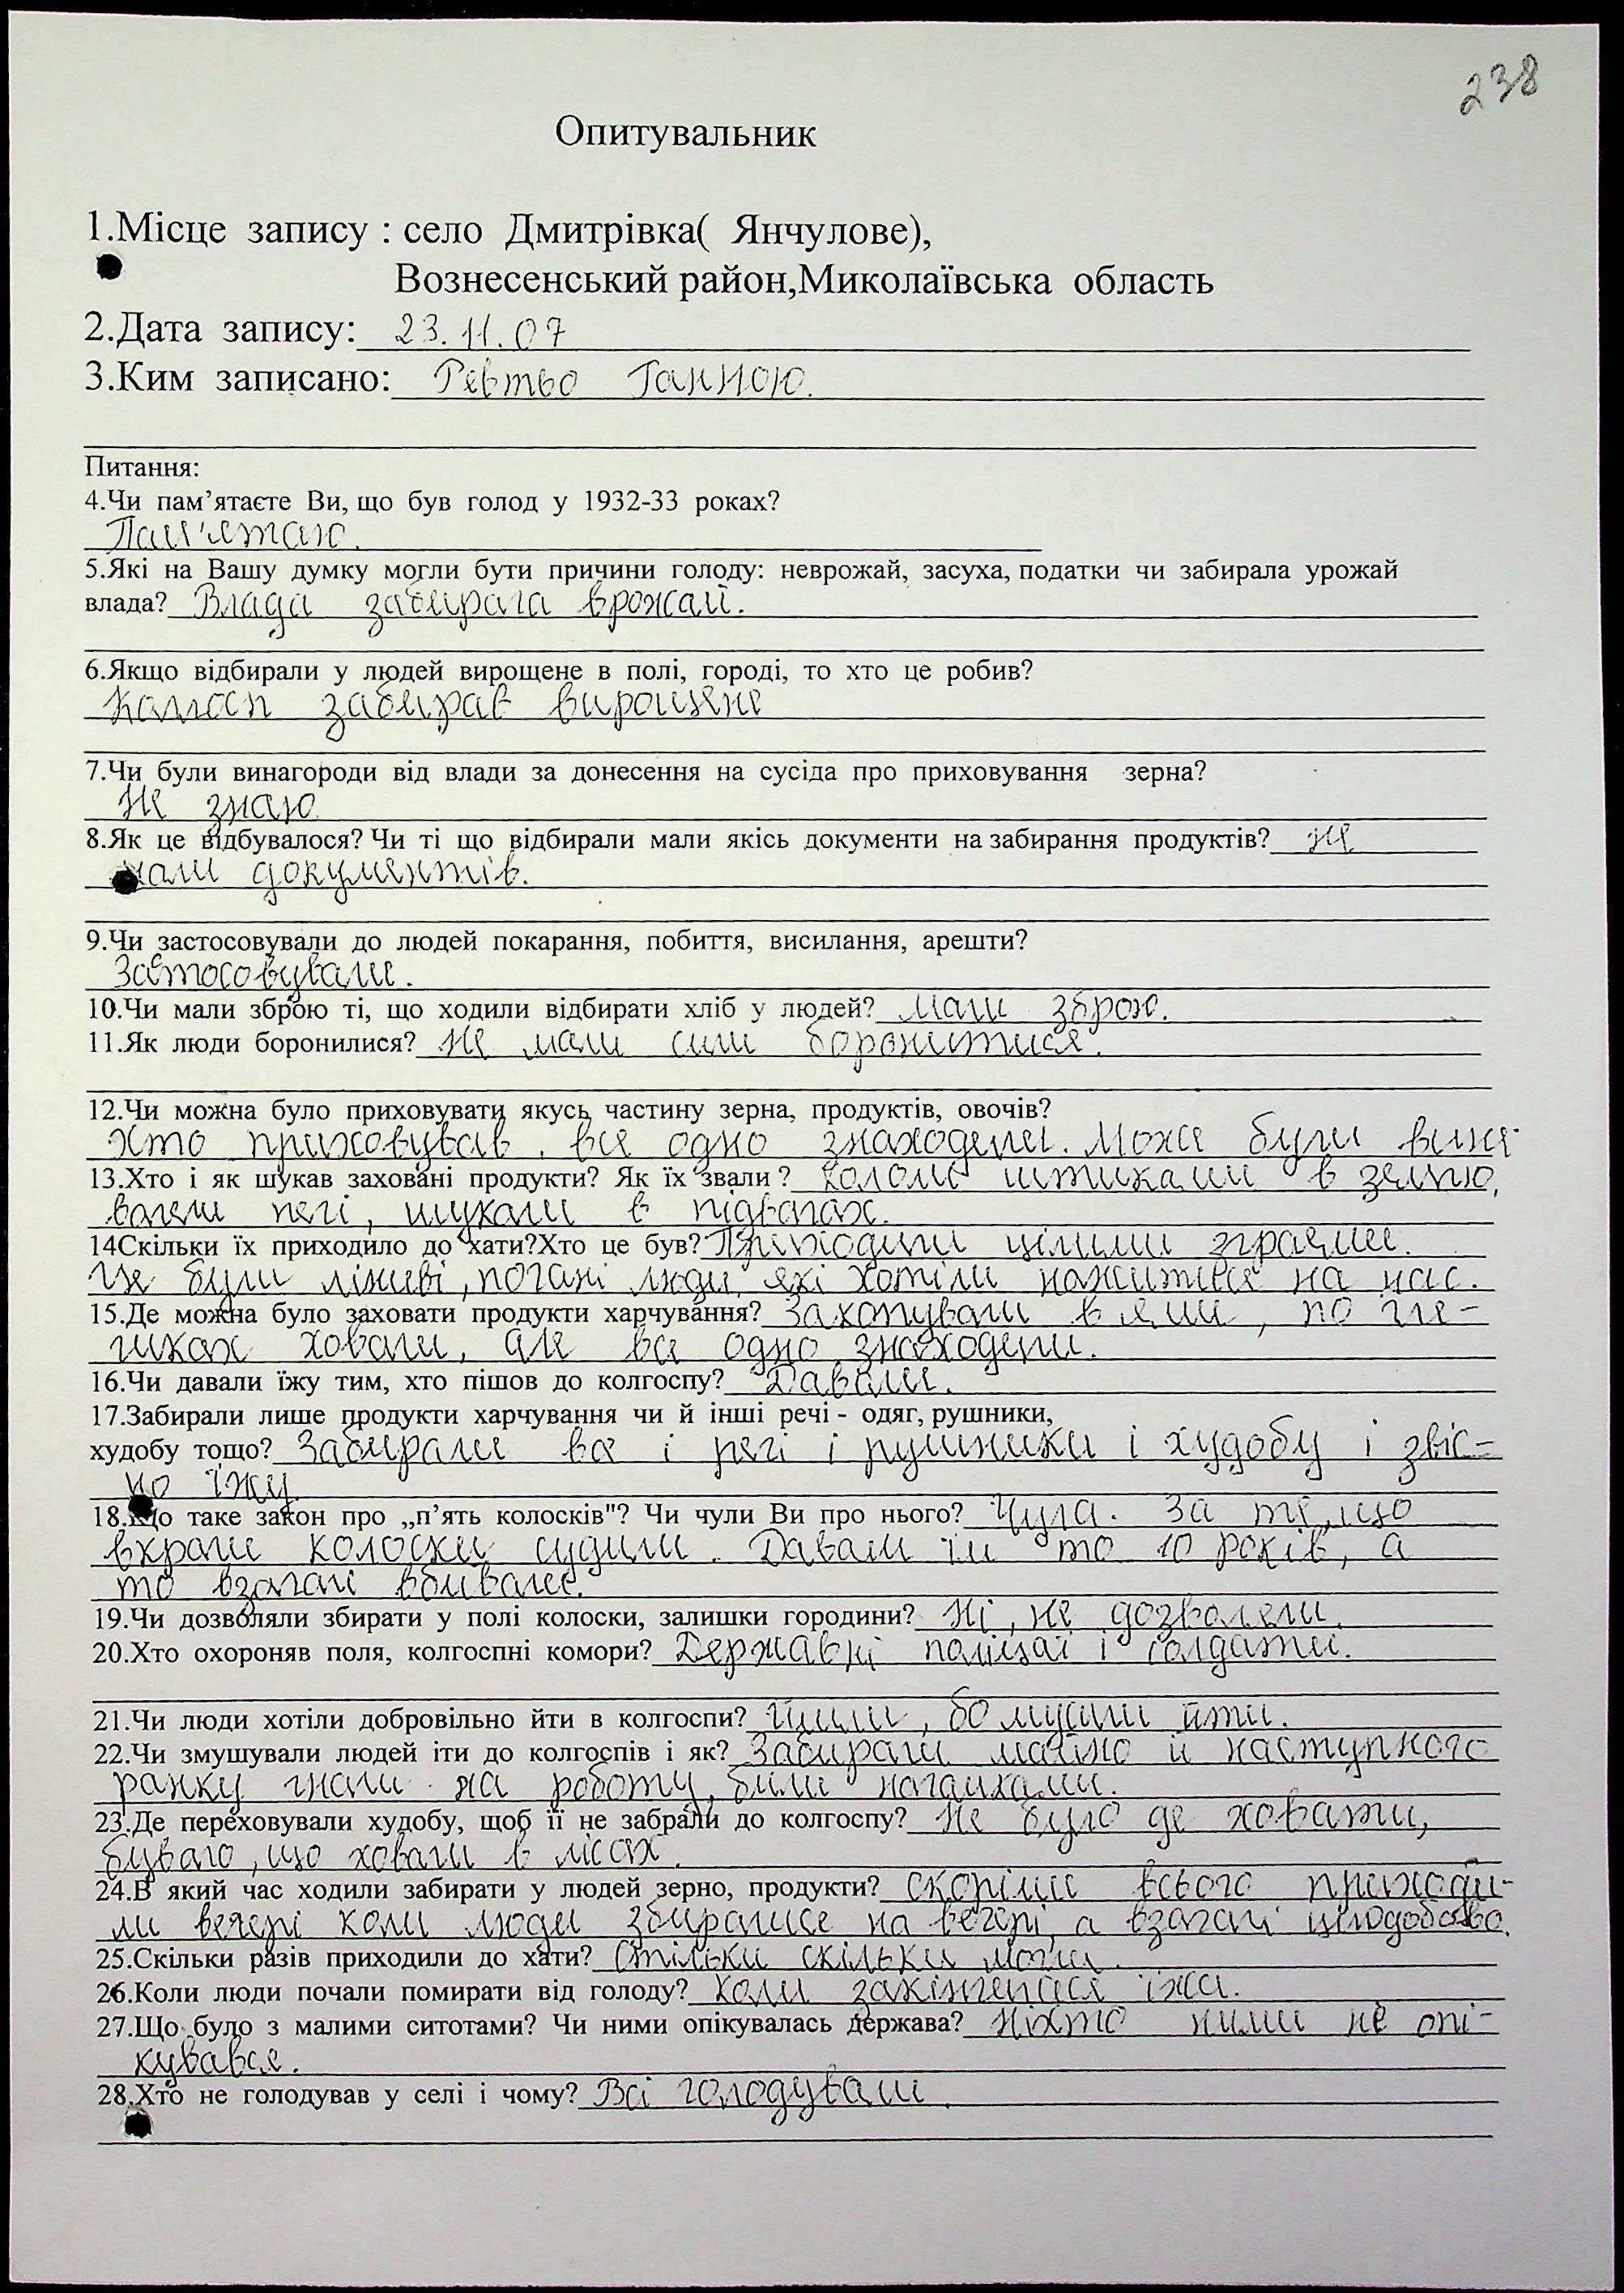 238
Опитувальник
1.Місце запису : село Дмитрівка( Янчулове),
Вознесенський район,Миколаївська область
2.Дата запису: 23.11.07
3.Ким записано: Ганною.
Питання:
4.Чи пам’ятаєте Ви, що був голод у 1932-33 роках?
Пам'ятаю.
5.Які на Вашу думку могли бути причини голоду: неврожай, засуха, податки чи забирала урожай
влада? Влада забирала врожай.
6.Якщо відбирали у людей вирощене в полі, городі, то хто це робив?
забирав вирощене
7.Чи були винагороди від влади за донесення на сусіда про приховування зерна?
Не знаю
8.Як це відбувалося? Чи ті що відбирали мали якісь документи на забирання продуктів? не
мали документів.
9.Чи застосовували до людей покарання, побиття, висилання, арешти?
Застосовували.
10.Чи мали зброю ті, що ходили відбирати хліб у людей? Мали зброю.
11.Як люди боронилися? Не мали сили боронитися.
12.Чи можна було приховувати якусь частину зерна, продуктів, овочів?
Хто приховував, все одно знаходили. Може були
13.Хто і як шукав заховані продукти? Як їх звали ? Кололи штиками в землю,
валели печі, шукали в підвалах.
14Скільки їх приходило до хати?Хто це був? Приходили цілими зграями.
Це були ліниві, погані люди, які хотіли нажитися на нас.
15.Де можна було заховати продукти харчування? Закопували в ями, по гле-
чиках ховали, але все одно знаходили.
16.Чи давали їжу тим, хто пішов до колгоспу? Давали.
17.Забирали лише продукти харчування чи й інші речі - одяг, рушники,
худобу тощо? Забирали все і речі і рушники і худобу і звіс-
но їжу.
18.Що таке закон про „п’ять колосків"? Чи чули Ви про нього? Чула. За те, що
вкрали колоски судили. Давали їм то 10 років, а
то взагалі вбивали.
19.Чи дозволяли збирати у полі колоски, залишки городини? Ні, не дозволяли.
20.Хто охороняв поля, колгоспні комори? Державні поліцаї і солдати.
21.Чи люди хотіли добровільно йти в колгоспи? Йшли, бо мусили йти.
22.Чи змушували людей іти до колгоспів і як? Забирали майно й наступного
ранку гнали на роботу, били нагайками.
23.Де переховували худобу, щоб її не забрали до колгоспу? Не було де ховати,
бувало, що ховали в лісах.
24.В який час ходили забирати у людей зерно, продукти? скоріш всього приходи-
ли вечері коли люди збиралися на вечері, а взагалі цілодобово.
25.Скільки разів приходили до хати? Стільки скільки могли.
26.Коли люди почали помирати від голоду? Коли закінчилася їжа.
27.Що було з малими ситотами? Чи ними опікувалась держава? Ніхто ними не опі-
кувався.
28.Хто не голодував у селі і чому? Всі голодували.